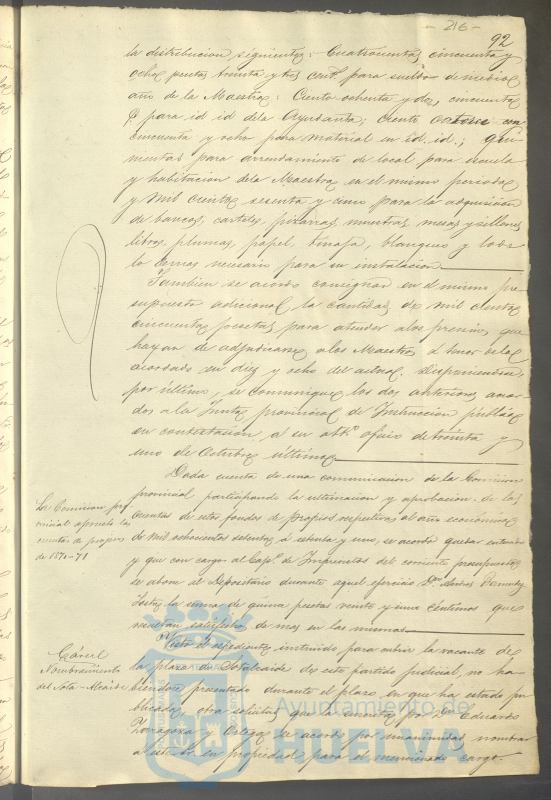 - 216 -
92
la distribucion siguiente: Cuatrocientas cincuenta y
ocho pesetas treinta y tres cent. para sueldo de medio
año de la Maestra: Ciento ochenta y dos, cincuenta
para id id de la Ayudanta; ciento
cincuenta y ocho para material en id. id.; qui-
nientas para arrendamiento de local para escuela
y habitacion de la Maestra en el mismo periodo
y mil ciento sesenta y cinco para la adquisicion
de bancos, carteles, pizarras, muestras, mesas y sillones
libros, plumas, papel, tinaja, blanqueo y todo
lo demas necesario para su instalacion.
Tambien se acordo consignar en el mismo pre-
supuesto adicional, la cantidad de mil ciento
cincuenta pesetas para atender a los premios que
hayan de adjudicarse a los Maestros á tenor de lo
acordado en diez y ocho del actual. Disponiendose
por último, se comuniquen los dos anteriores acuer-
dos a la Junta provincial de Instruccion publica
en contestacion á su att.º oficio de treinta y
uno de Octubre último.
Dada cuenta de una comunicacion de la Comision
provincial participando la ultimacion y aprobacion de las
cuentas de estos fondos de Propios respectivas al año económico
de mil ochocientos setenta á setenta y uno, se acordó quedar enterado
y que con cargo al Cap.º de Imprevistos del corriente presupuesto
se abone al Depositario durante aquel ejercicio D. Andres
la suma de quince pesetas veinte y un centimos que
resultan satisfechas de mas en las mismas.
La Comision pro-
vincial aprueba las
cuentas de propios
de 1870-71
Visto el expediente instruido para cubrir la vacante de
la plaza de Sotalcaide de este partido judicial, no ha-
biendose presentado durante el plazo en que ha estado pu-
blicada, otra solicitud que la suscrita por D. Eduardo
Zaragoza y Ortega, se acordo por unanimidad nombrar
a este en propiedad para el mencionado cargo.
Cárcel
Nombramiento
del Sota-Alcaide
Ayuntamiento de
HUELVA